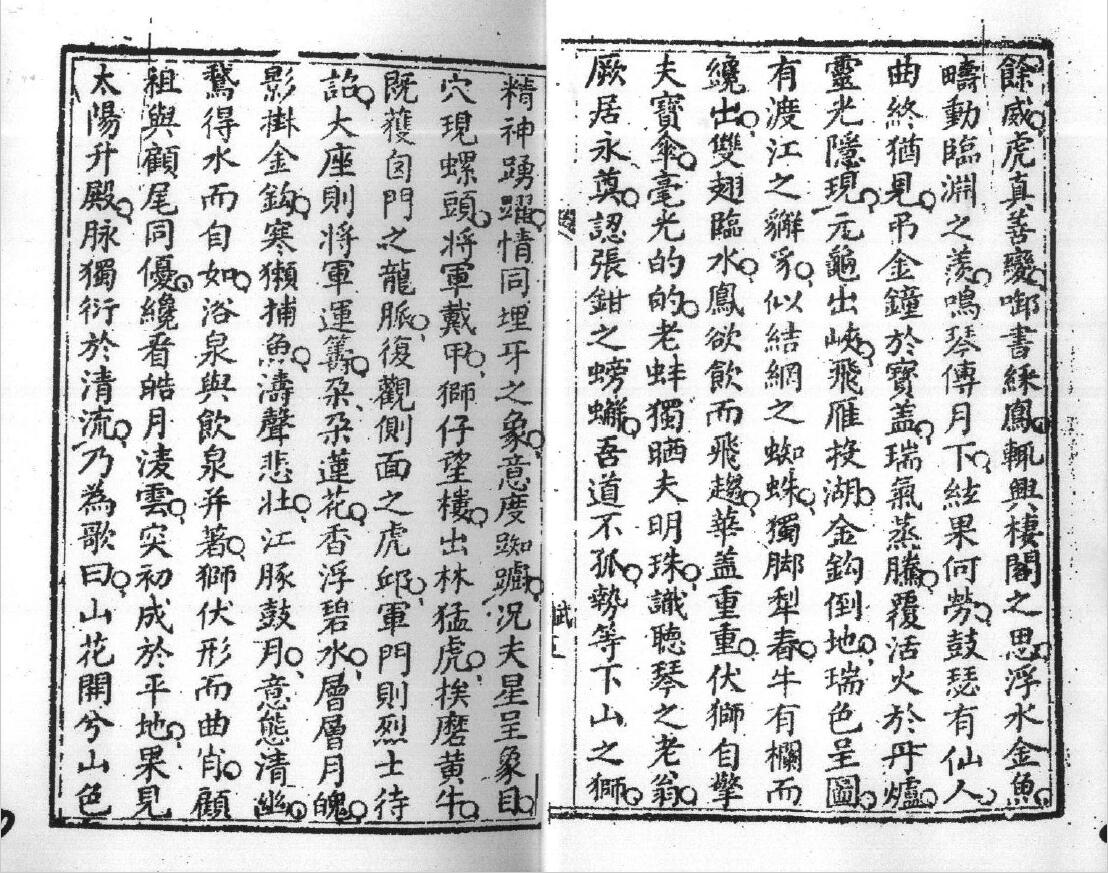 餘威虎真善變啣書綵鳳輒興棲閣之思浮水金魚
疇動臨淵之羨鳴琴傳月下絃果何勞鼓瑟有仙人
曲終猶見弔金鐘於寶盖瑞氣蒸騰覆活火於丹爐
靈光隱現元龜出峽飛雁投湖金鈎倒地瑞色呈圖
有渡江之獬豸似結網之蜘蛛獨脚犁春牛有欄而
纔出雙翅臨水鳳欲飲而飛趨華盖重重伏獅自擎
夫寶傘毫光的的老蚌獨晒夫明珠識聽琴之老翁
厥居永奠認張鉗之螃蠏吾道不孤勢等下山之獅
賦
精神踴躍情同埋牙之象意度踟躕況夫星呈象目
穴現螺頭將軍戴甲獅仔望樓出林猛虎挨磨黃牛
既獲囪門之龍脈復觀側面之虎邱軍門則烈士待
詔大座則將軍運籌朶朶蓮花香浮碧水層層月魄
影掛金鈎寒獺捕魚濤聲悲壯江豚鼓月意態清幽
鵞得水而自如浴泉與飲泉并著獅伏形而曲肖顧
祖與顧尾同優纔看皓月凌雲突初成於平地果見
太陽升殿脉獨衍於清流乃為歌曰山花開兮山色